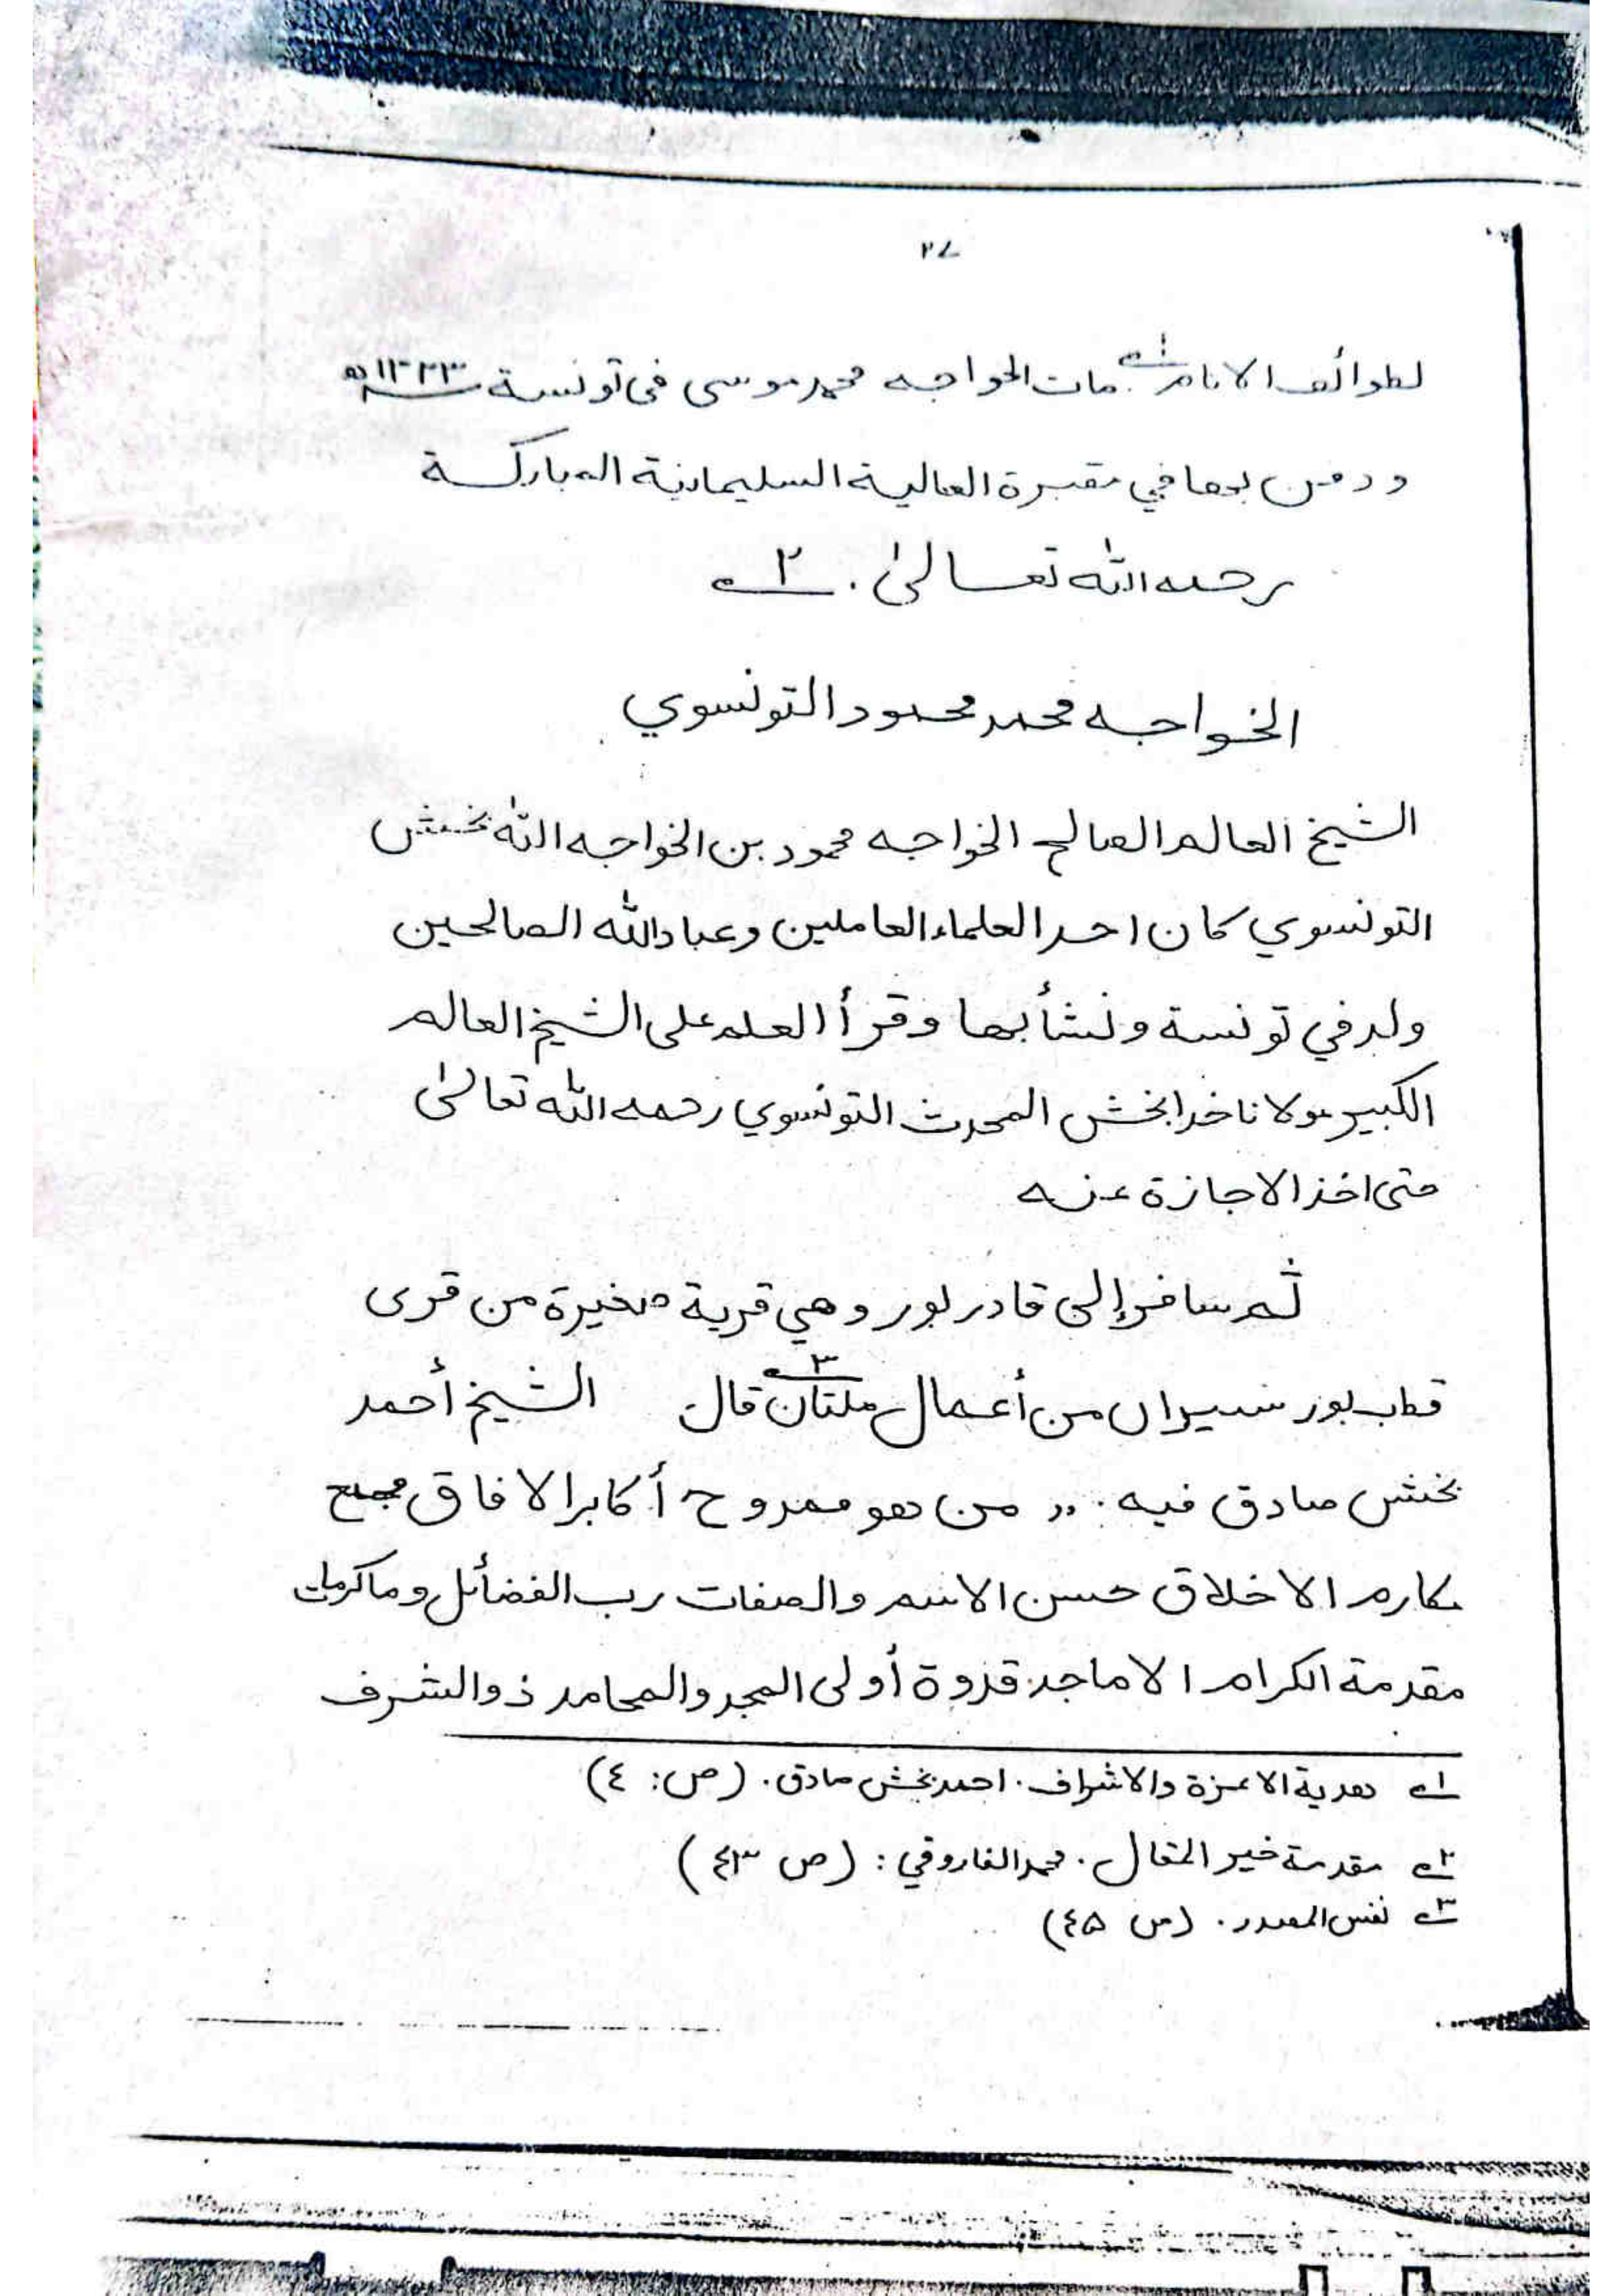 ٢٧
لطوائف الانام ١ مات الخواجه محمد موسى فى تونسة سنة ١٣٢٣ ه
ودفن بها في مقبرة العالية السليمانية المباركة
رحمه الله تعالىٰ . ٢
الخواجه محمد محمود التونسوي
الشيخ العالم الصالح الخواجه محمود بن الخواجه الله بخش
التونسوي كان احد العلماء العاملين وعباد الله الصالحين
ولد في تونسة ونشأ بها وقرأ العلم على الشيخ العالم
الكبير مولانا خدا بخش المحدث التونسوي رحمه الله تعالىٰ
حتى اخذ الاجازة عنه
ثم سافر إلى قادر بور وهي قرية صغيرة من قرى
قطب بور من أعمال ملتان ٣ قال الشيخ أحمد
بخش صادق فيه . ,, من هو ممدوح أكابر الافاق مجمع
مكارم الاخلاق حسن الاسم والصفات رب الفضائل وماكرمات
مقدمة الكرام الاماجد قدوة أولى المجد والمحامد ذو الشرف
١ هدية الاعزة والاشراف . احمد بخش صادق . (ص: ٤)
٢ مقدمة خير المقال . محمد الفاروقي : (ص ٤٣)
٣ نفس المصدر . (ص ٤۵)